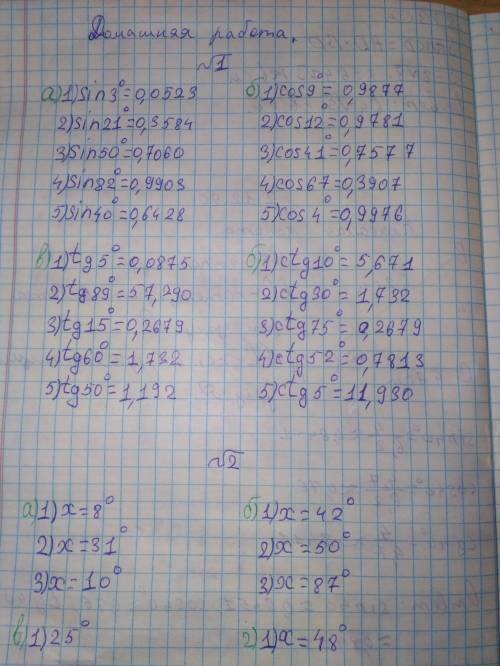 Домашняя работа.
№1
а) 1) sin3°=0,0523
2) sin21°=0,3584
3) sin50°=0,7060
4) sin82°=0,9903
5) sin40°=0,6428
б) 1) cos9°=0,9877
2) cos12°=0,9781
3) cos41°=0,7577
4) cos67°=0,3907
5) cos4°=0,9976
в) 1) tg5°=0,0875
2) tg89°=57,290
3) tg15°=0,2679
4) tg60°=1,732
5) tg50°=1,192
б) 1) ctg10°=5,671
2) ctg30°=1,732
3) ctg75°=0,2679
4) ctg52°=0,7813
5) ctg5°=11,930
№2
а) 1) x=8°
2) x=31°
3) x=10°
б) 1) x=42°
2) x=50°
3) x=87°
в) 1) 25°
г) 1) x=48°